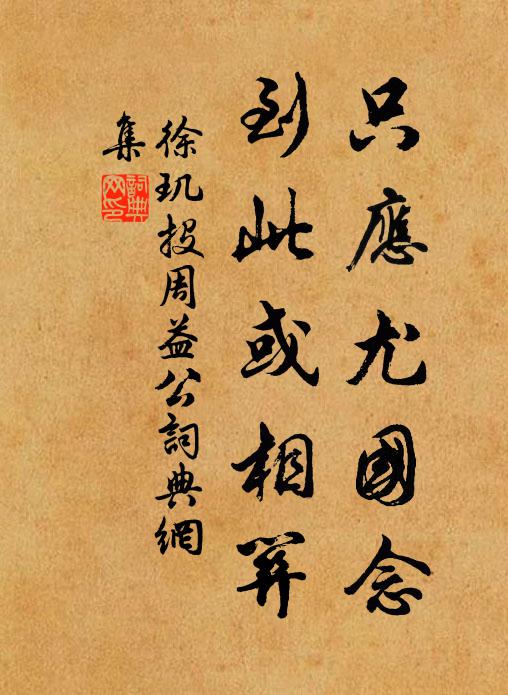 只應尤國念
到此或相關
徐玑投周益公詞典網
集
詞典網印